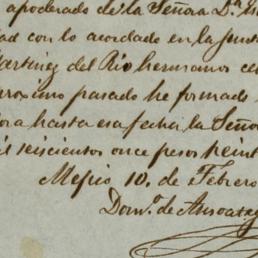 apoderado de la Señora Dª
con lo acordado en la Junta
Martinez del Rio hermanos
proximo pasado he formado
hasta esa fecha la Señor
seiscientos once pesos veint
Mejico 10. de Febrero
Domº. de Ansoateg